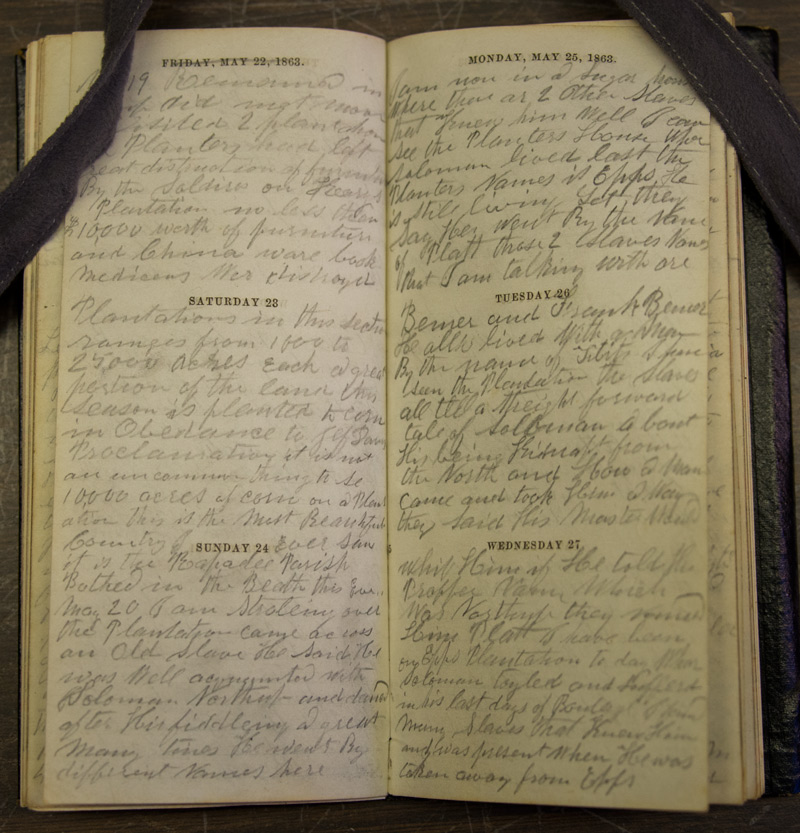 FRIDAY, MAY 22, 1863.
19 Remained in
did not move
visited 2 plantation
Planters had left
great distruction of furniture
By the Soldiers on
Plantation no less then
$10,000 worth of furniture
and China ware book
Medicens Wer distroyed
SATURDAY 23
Plantations in this section
rainges from 1000 to
25,000 acres Each a great
portion of the land this
Season is planted to corn
in Obedance to Jef Davis
Proclamation it is not
an uncommon thing to se
10000 acres of corn on a Plant
ation this is the Most Beautiful
Country I Ever Saw
SUNDAY 24
it is the Rapadee Parish
Bathed in the this Eve
May 20 I am Stroleing over
the Plantation came across
an Old Slave He Said He
was Well acquainted with
Soloman Northup and danced
after His fiddleing a great
Many times He went By
different Names here
MONDAY, MAY 25, 1863.
I am now in a Sugar house
where there ar 2 Other Slaves
that Knew him Well I can
see the Planters House Wher
Soloman lived last the
Planters Names is Epps He
is Still living yet they
Say He went By the Name
of Platt those 2 Slaves Names
that I am talking with are
TUESDAY 26
and Frank
He allso lived With a Man
By the name of
I seen the Plantation the Slaves
all tell a Streight forward
tale of Soloman about
His being Kidnapt from
the North and How a Man
came and took Him a Way
they Said His Master Would
WEDNESDAY 27
whip Him if He told his
Propper Name Which
Was Northup they
Him Platt I have been
on Epps Plantation to day Whar
Soloman toyled and Suffered
in his last days of Bondage I
Many Slaves that Knew Him
and was present When He was
taken away from Epps